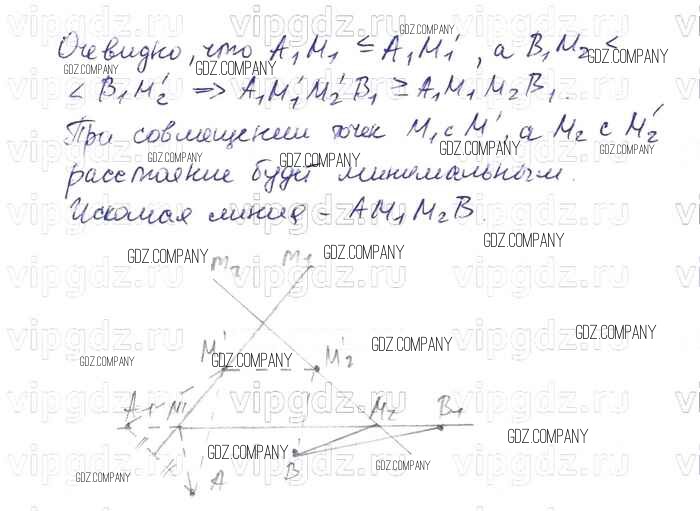 Очевидно, что A₁M₁ ≤ A₁M₁', а B₁M₂ <
< B₁M₂' => A₁M₁'M₂'B₁ ≥ A₁M₁M₂B₁.
При совмещении точек M₁ с M', а M₂ с M₂'
расстояние буд минимальным.
Искомая линия - AM₁M₂B.
m₂ m₁
M' M₂'
A₁ M₁ M₂ B₁
B
A
GDZ.COMPANY
vipgdz.ru